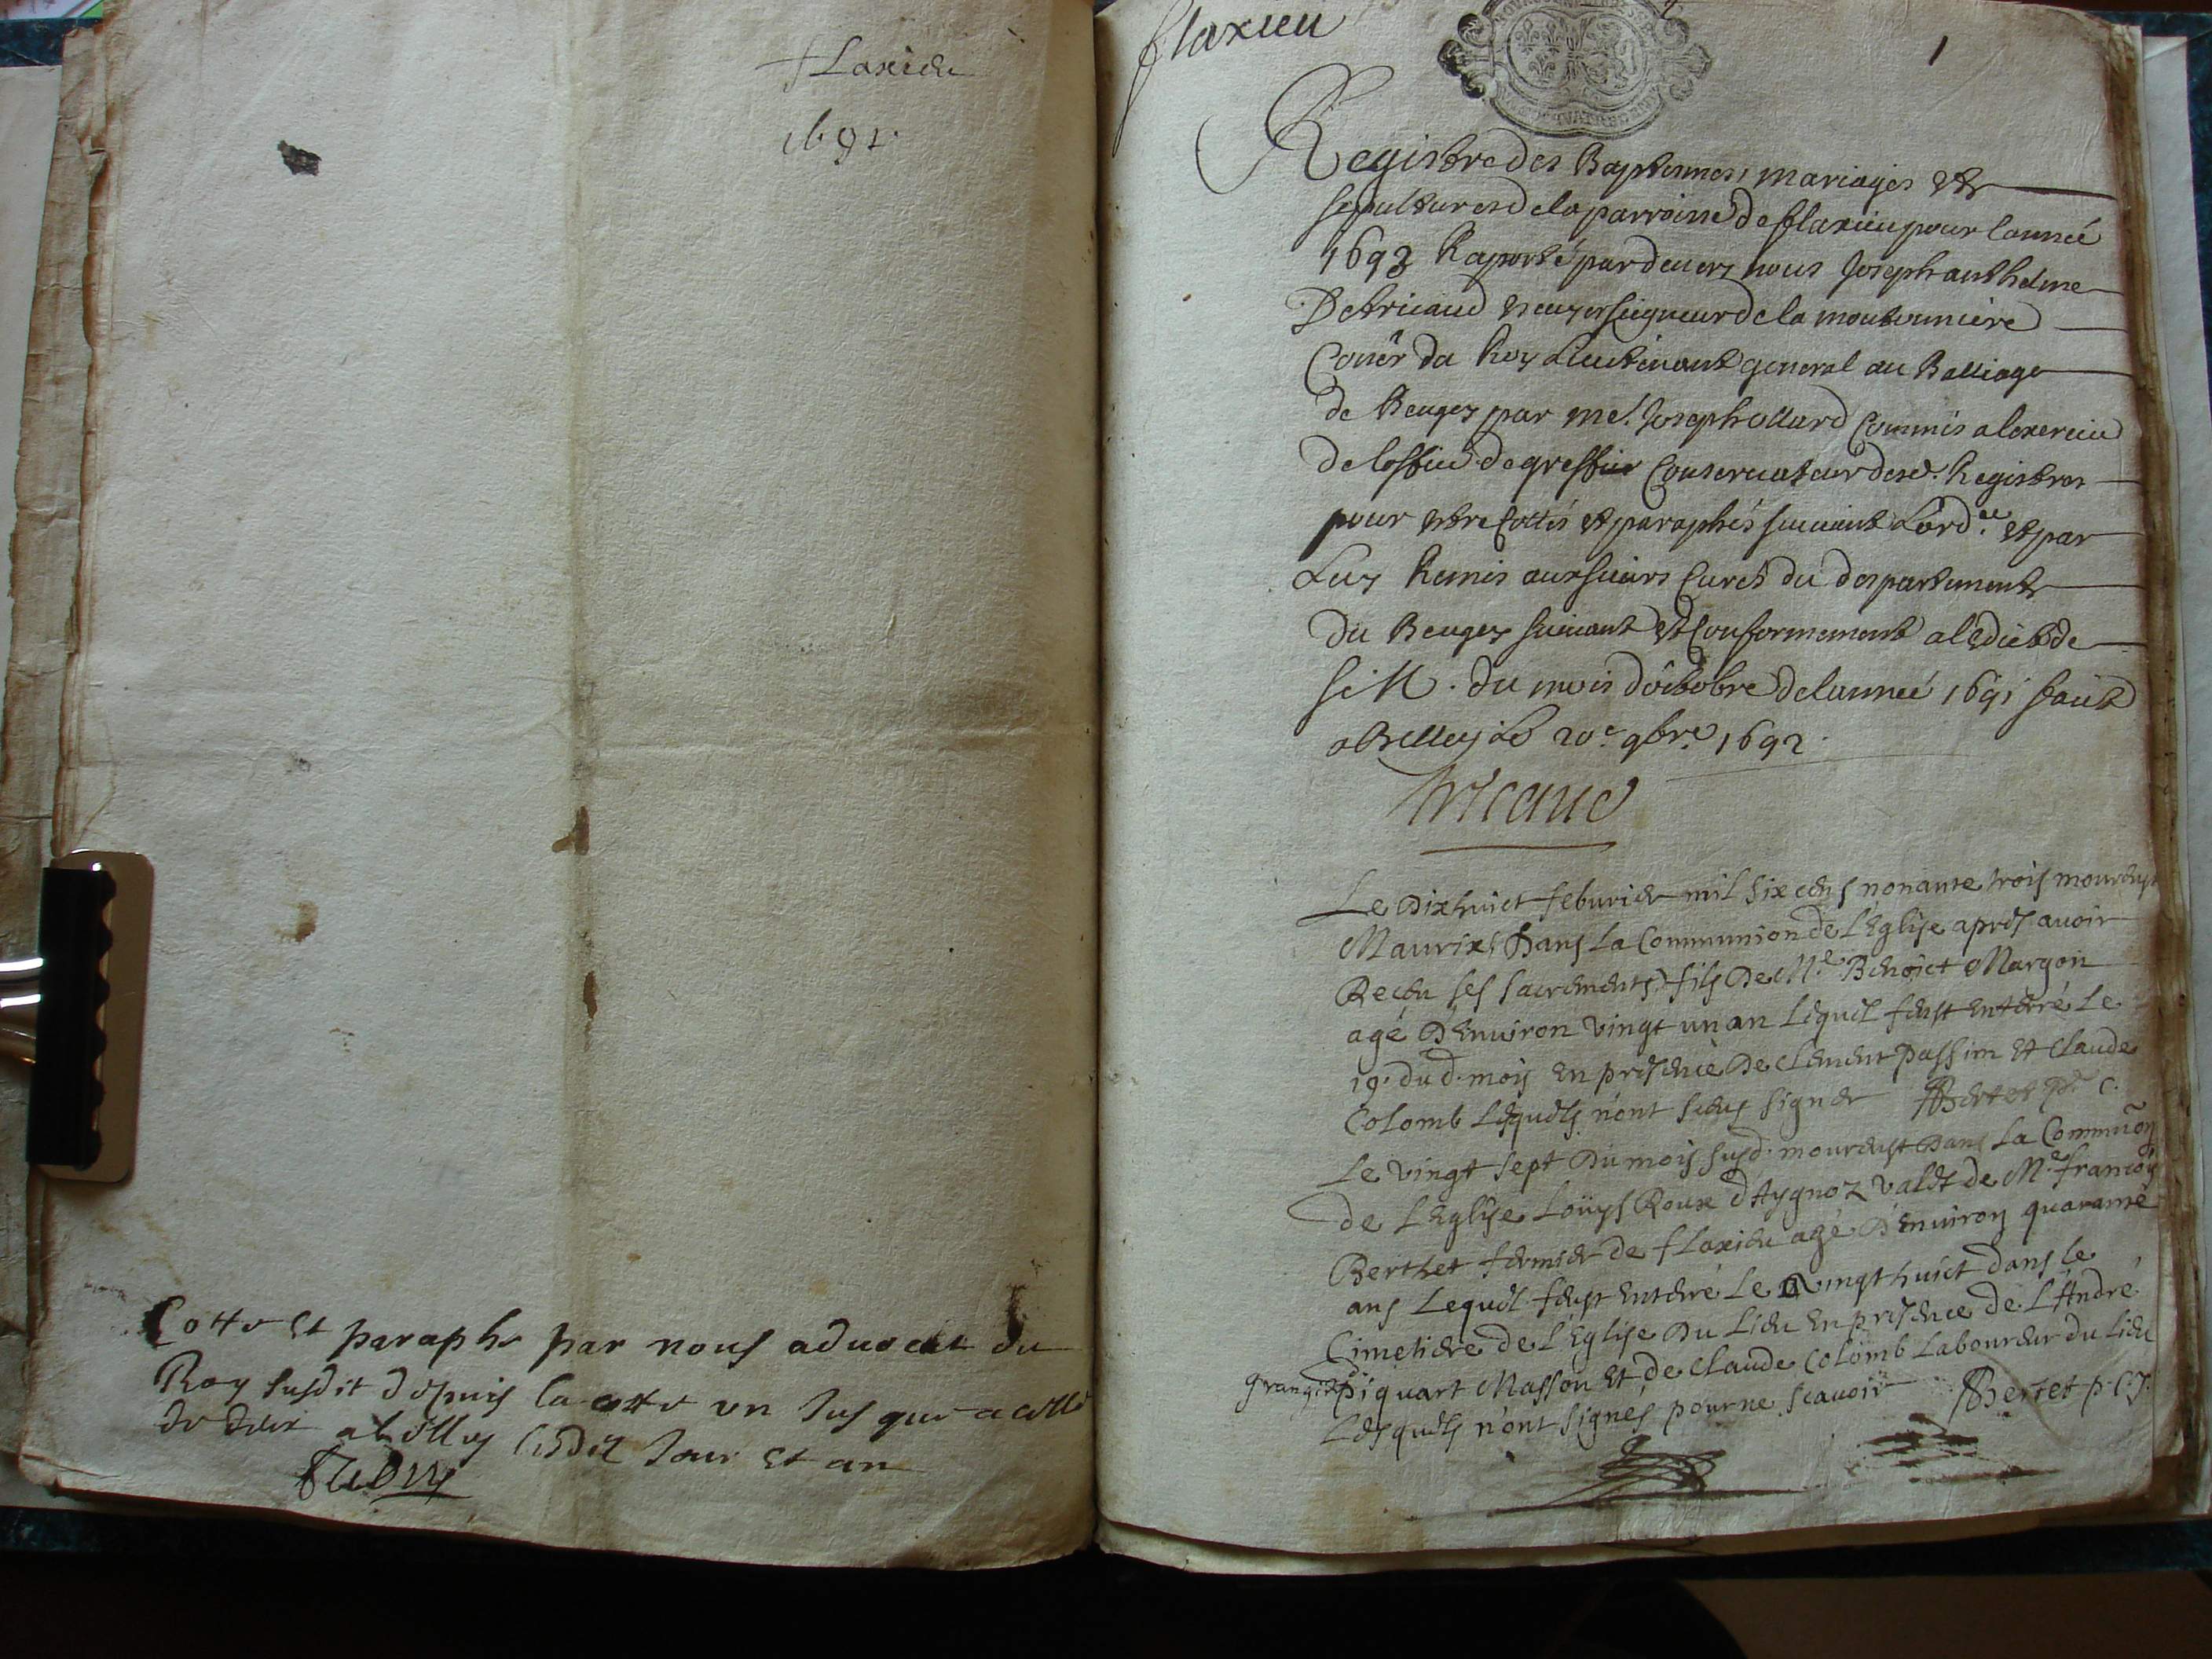 fLaxieu
1692
Cotte et paraphe par nous aduocat du
Roy susdit depuis la cotte un Jusque a celle
de dix a belley lesdit Jour et an
flaxieu
1
Registre des Baptesmes, mariages et
sepultures de la parroisse de flaxieu pour lannée
1693 Raporté pardeuers nous Joseph anthelme
De tricaud escuyer seigneur de la
Coner du Roy Lieutenant general au Balliage
de Beugey par me. Joseph ollard Commis a lexercice
de loffice de greffier Conseruateur desd. Registres
pour estre Cottés et paraphés suiuant Lord.ce et par
Luy Remis aux sieurs Curés du despartement
du Beugey suiuant et Conformement a ledict de
sa M. du mois doctobre de lannée 1691 faict
a Belley Le 20e 9bre 1692.
tricaud
Le Dixhuict feburier mil six cens nonante trois mourust
Maurix (Dans La Communion de l'Eglise apres auoir
Receu ses sacrements) fils De Me Benoict Margon
agé D'Enuiron vingt un an Lequel feust Enterré Le
19. du d. mois En presence De Clement passim Et Claude
Colomb Lesquels n'ont sceus signer Bertet
Le vingt sept Du mois susd. mourust Dans La Communõn
de L'Eglise Loüys Roux d'Aygnoz valet de Me françois
Berthet fermier de fLaxieu agé D'Enuiron quarante
ans Lequel feust Enterré Le vingthuict dans le
Cimetiere de l'Eglise Du Lieu En presence de L'André
granger piquart Masson Et de Claude Colomb Laboureur du Lieu
Lesquels n'ont signes pour ne scauoir Bertet